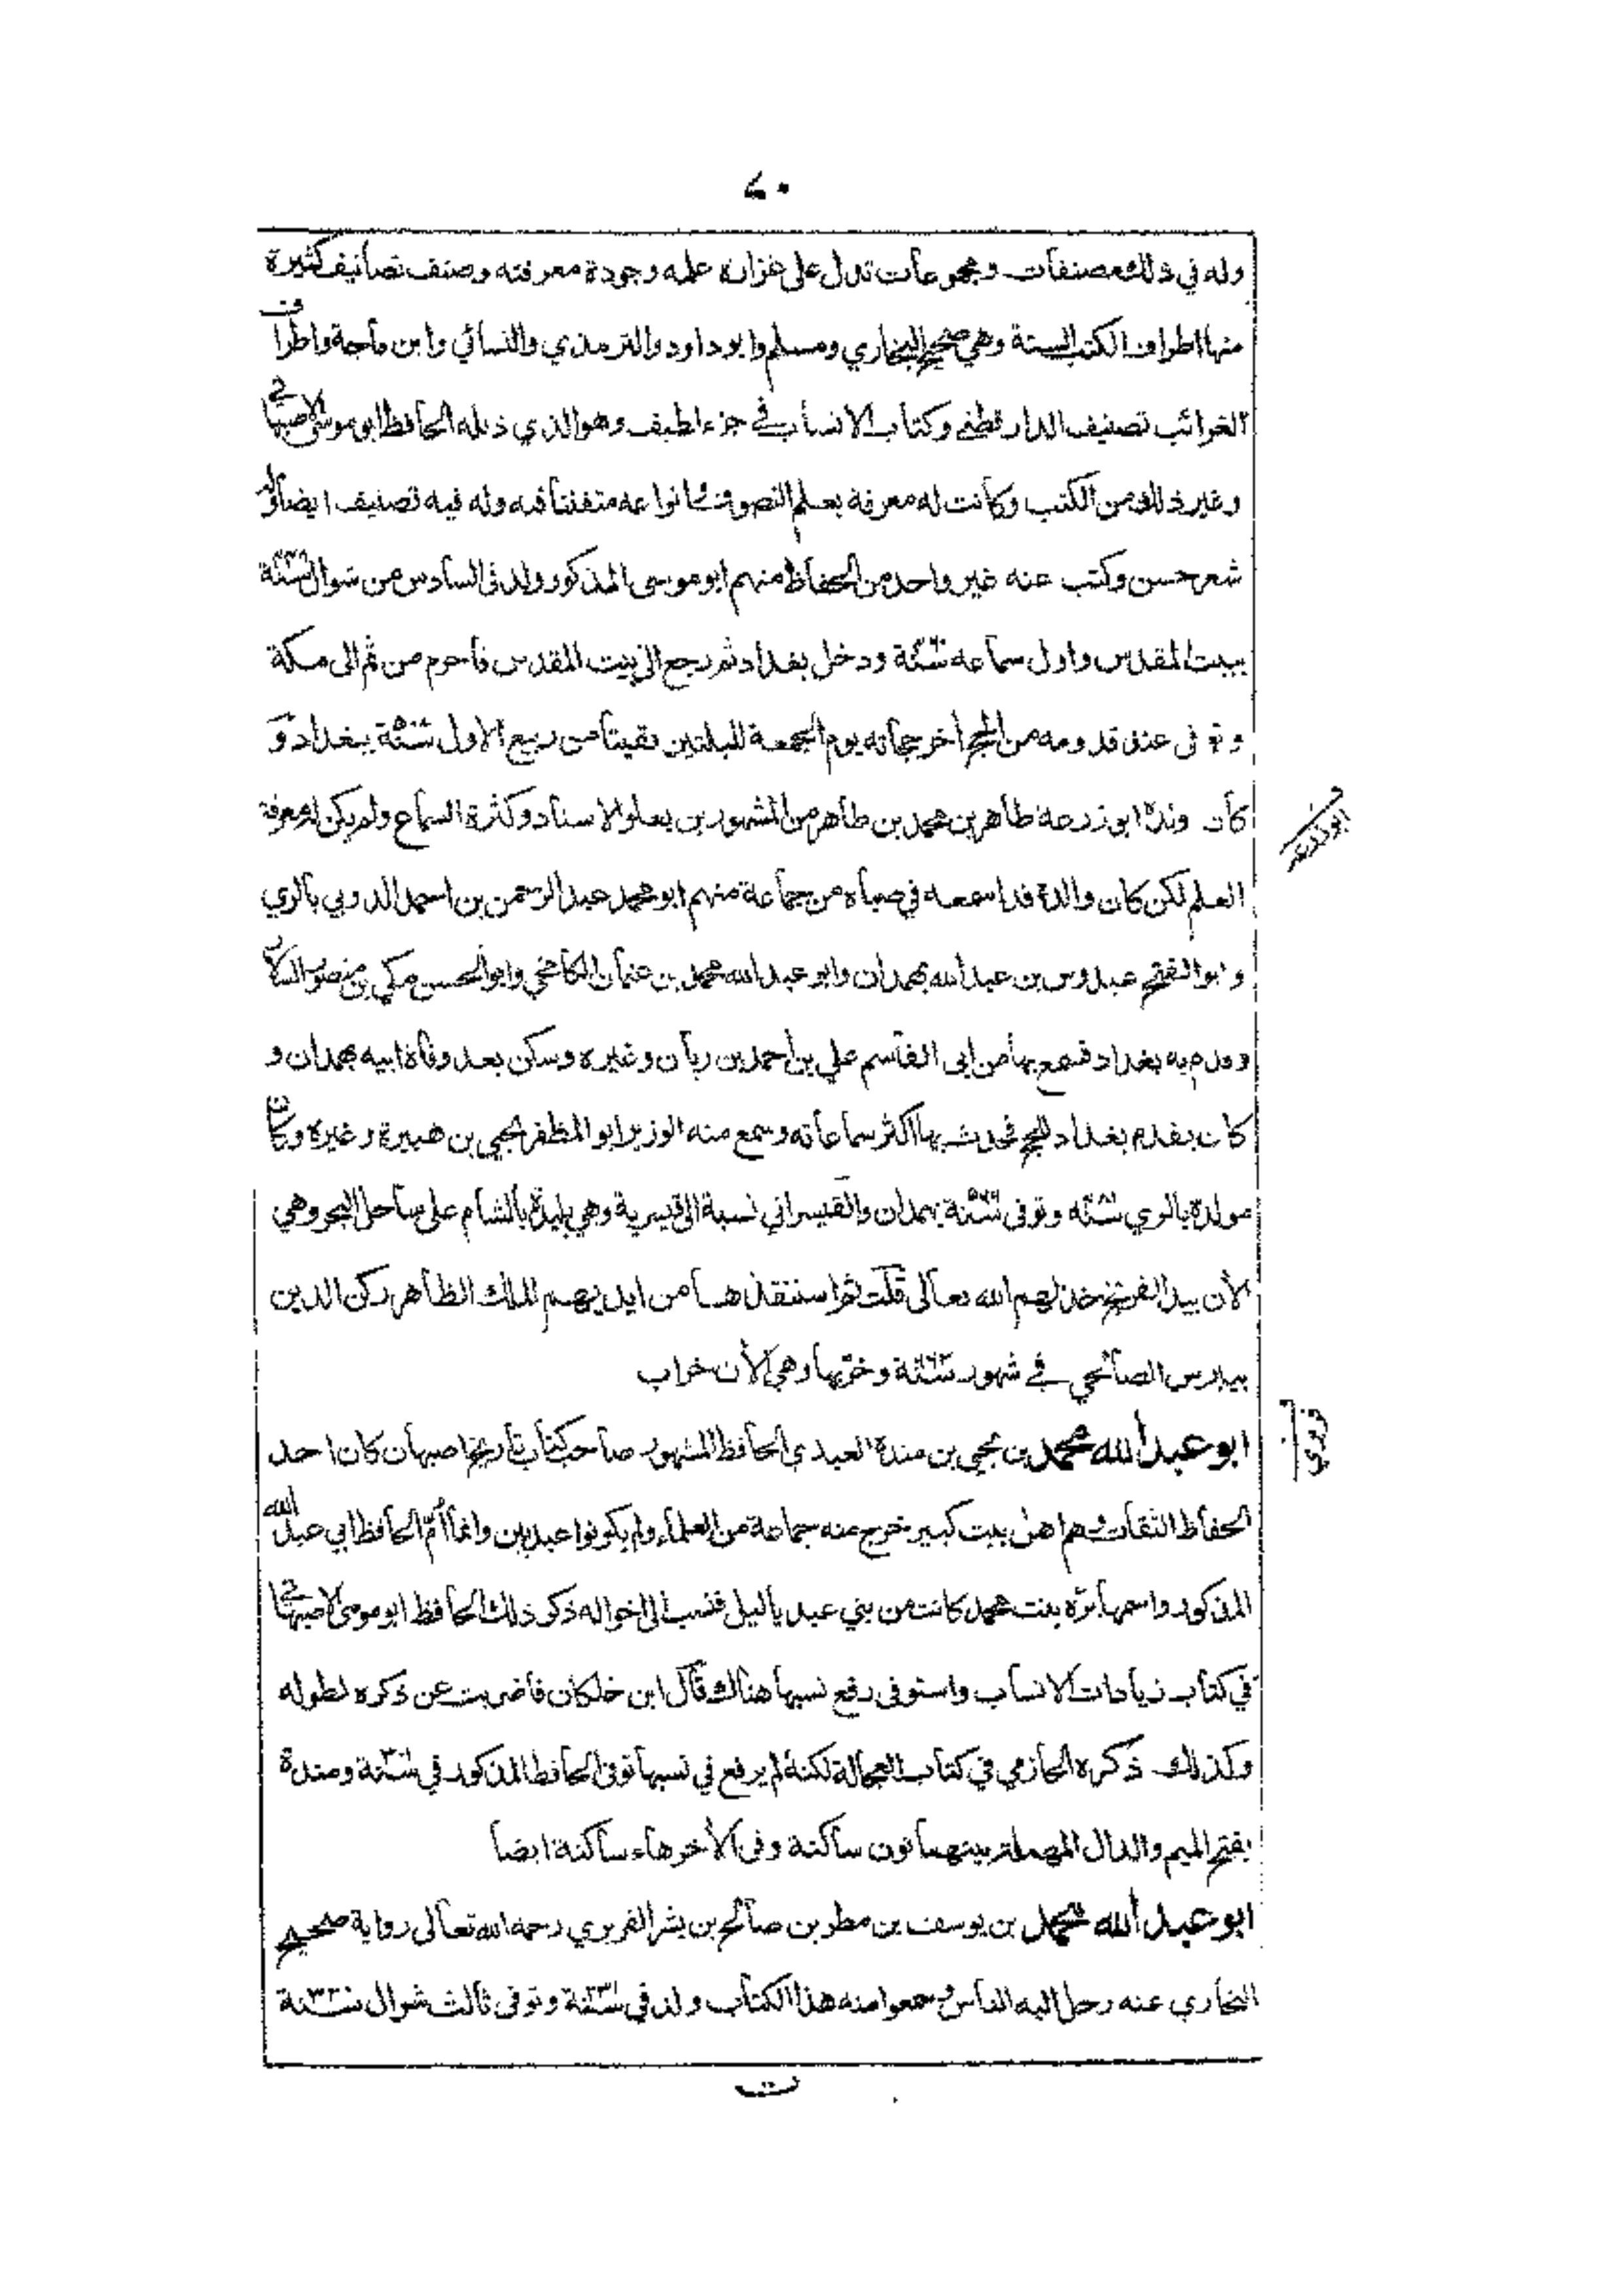 ٤٠
وله في ذلك مصنفات ومجموعات تدل على غزارة علمه وجودة معرفته وصنف تصانيف كثيرة
منها اطراف الكتب الستة وهي صحيح البخاري ومسلم وابوداود والترمذي والنسائي وابن ماجة واطراف
الغرائب تصنيف الدارقطني وكتاب الانساب في جزء لطيف وهو الذي ذيله الحافظ ابوموسى الاصبهاني
وغير ذلك من الكتب وكانت له معرفة بعلم التصوف وانواعه متفننا فيه وله فيه تصنيف ايضا وله
شعر حسن وكتب عنه غير واحد من الحفاظ منهم ابوموسى المذكور ولد في السادس من شوال
ببيت المقدس واول سماعه ودخل بغداد ثم رجع الى بيت المقدس فاحرم من ثم الى مكة
وتوفي عند قدومه من الحج اخر حجاته يوم الجمعة لليلتين بقيتا من ربيع الاول ببغداد و
كان ولدة ابوزرعة طاهر بن محمد بن طاهر من المشهورين بعلو الاسناد وكثرة السماع ولم يكن له معرفة
العلم لكن كان والدة قد اسمعه في صباه من جماعة منهم ابومحمد عبدالرحمن بن احمد الدوني بالري
وابوالفتح عبدوس بن عبدالله بهمدان وابوعبدالله محمد بن عثمان الكامخي وابوالحسن مكي بن منصور السلار
وقدم به بغداد فسمع بها من ابي القاسم علي بن احمد بن ريان وغيره وسكن بعد وفاة ابيه بهمدان و
كان يقدم بغداد للحج فحدث بها اكثر سماعاته وسمع منه الوزير ابوالمظفر يحيى بن هبيرة وغيره وكان
مولدة بالري وتوفي بهمدان والقيسراني نسبة الى قيسرية وهي بليدة بالشام على ساحل البحر وهي
الأن بيد الفرنج خذلهم الله تعالى قلت ثم استنقذها من ايديهم الملك الظاهر ركن الدين
بيبرس الصالحي في شهور وخربها وهي الأن خراب
ابوعبدالله محمد بن يحيى بن مندة العبدي الحافظ المشهور صاحب كتاب تاريخ اصبهان كان احد
الحفاظ الثقات وهم اهل بيت كبير خرج منه جماعة من العلماء ولم يكونوا عبديين وانما أم الحافظ ابي عبدالله
المذكور واسمها برة بنت محمد كانت من بني عبد ياليل فنسب الى اخواله ذكر ذلك الحافظ ابوموسى الاصبهاني
في كتاب زيادات الانساب واستوفى رفع نسبها هنالك قال ابن خلكان فاضربت عن ذكره لطوله
وكذلك ذكره الحازمي في كتاب العجالة لكنه لم يرفع في نسبها توفي الحافظ المذكور في سنة ٣٠١ ومندة
بفتح الميم والدال المهملة بينهما نون ساكنة وفي الأخر هاء ساكنة ايضا
ابوعبدالله محمد بن يوسف بن مطر بن صالح بن بشر الفربري رحمه الله تعالى رواية صحيح
البخاري عنه رحل اليه الناس وسمعوا منه هذا الكتاب ولد في سنة ٢٣١ وتوفي ثالث شوال سنة ٣٢٠
ابوزرعة